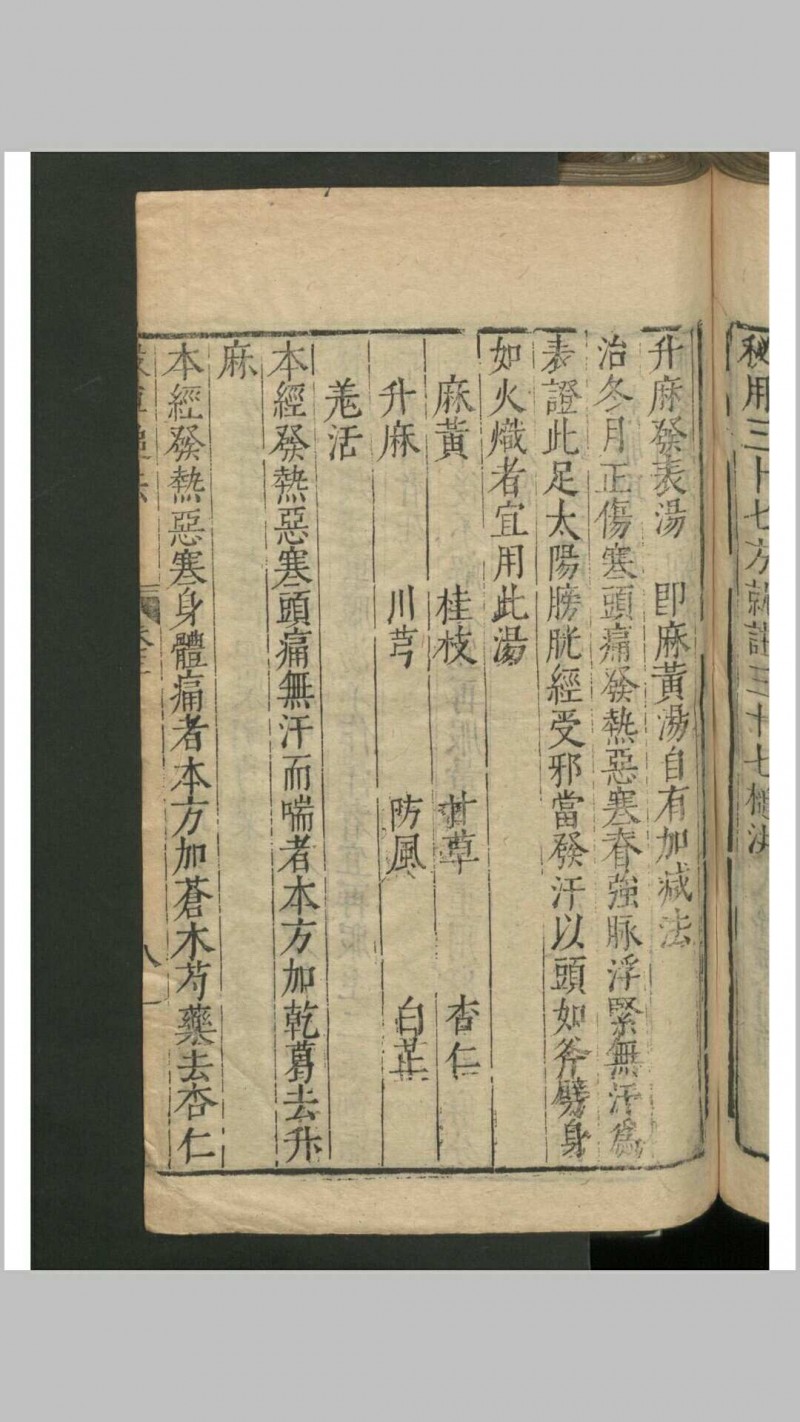 秘用三十七方就註三十七槌法
升麻發表湯　即麻黃湯自有加減法
治冬月正傷寒頭痛發熱惡寒脊強脉浮緊無汗為
表證此足太陽膀胱經受邪當發汗以頭如斧劈身
如火熾者宜用此湯
麻黃　桂枝　甘草　杏仁
升麻　川芎　防風　白芷
羗活
本經發熱惡寒頭痛無汗而喘者本方加乾葛去升
麻
本經發熱惡寒身體痛者本方加蒼朮芍藥去杏仁
八